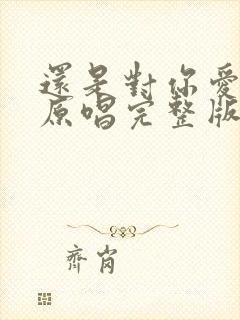 還是對你愛
原唱完整版
齊肖